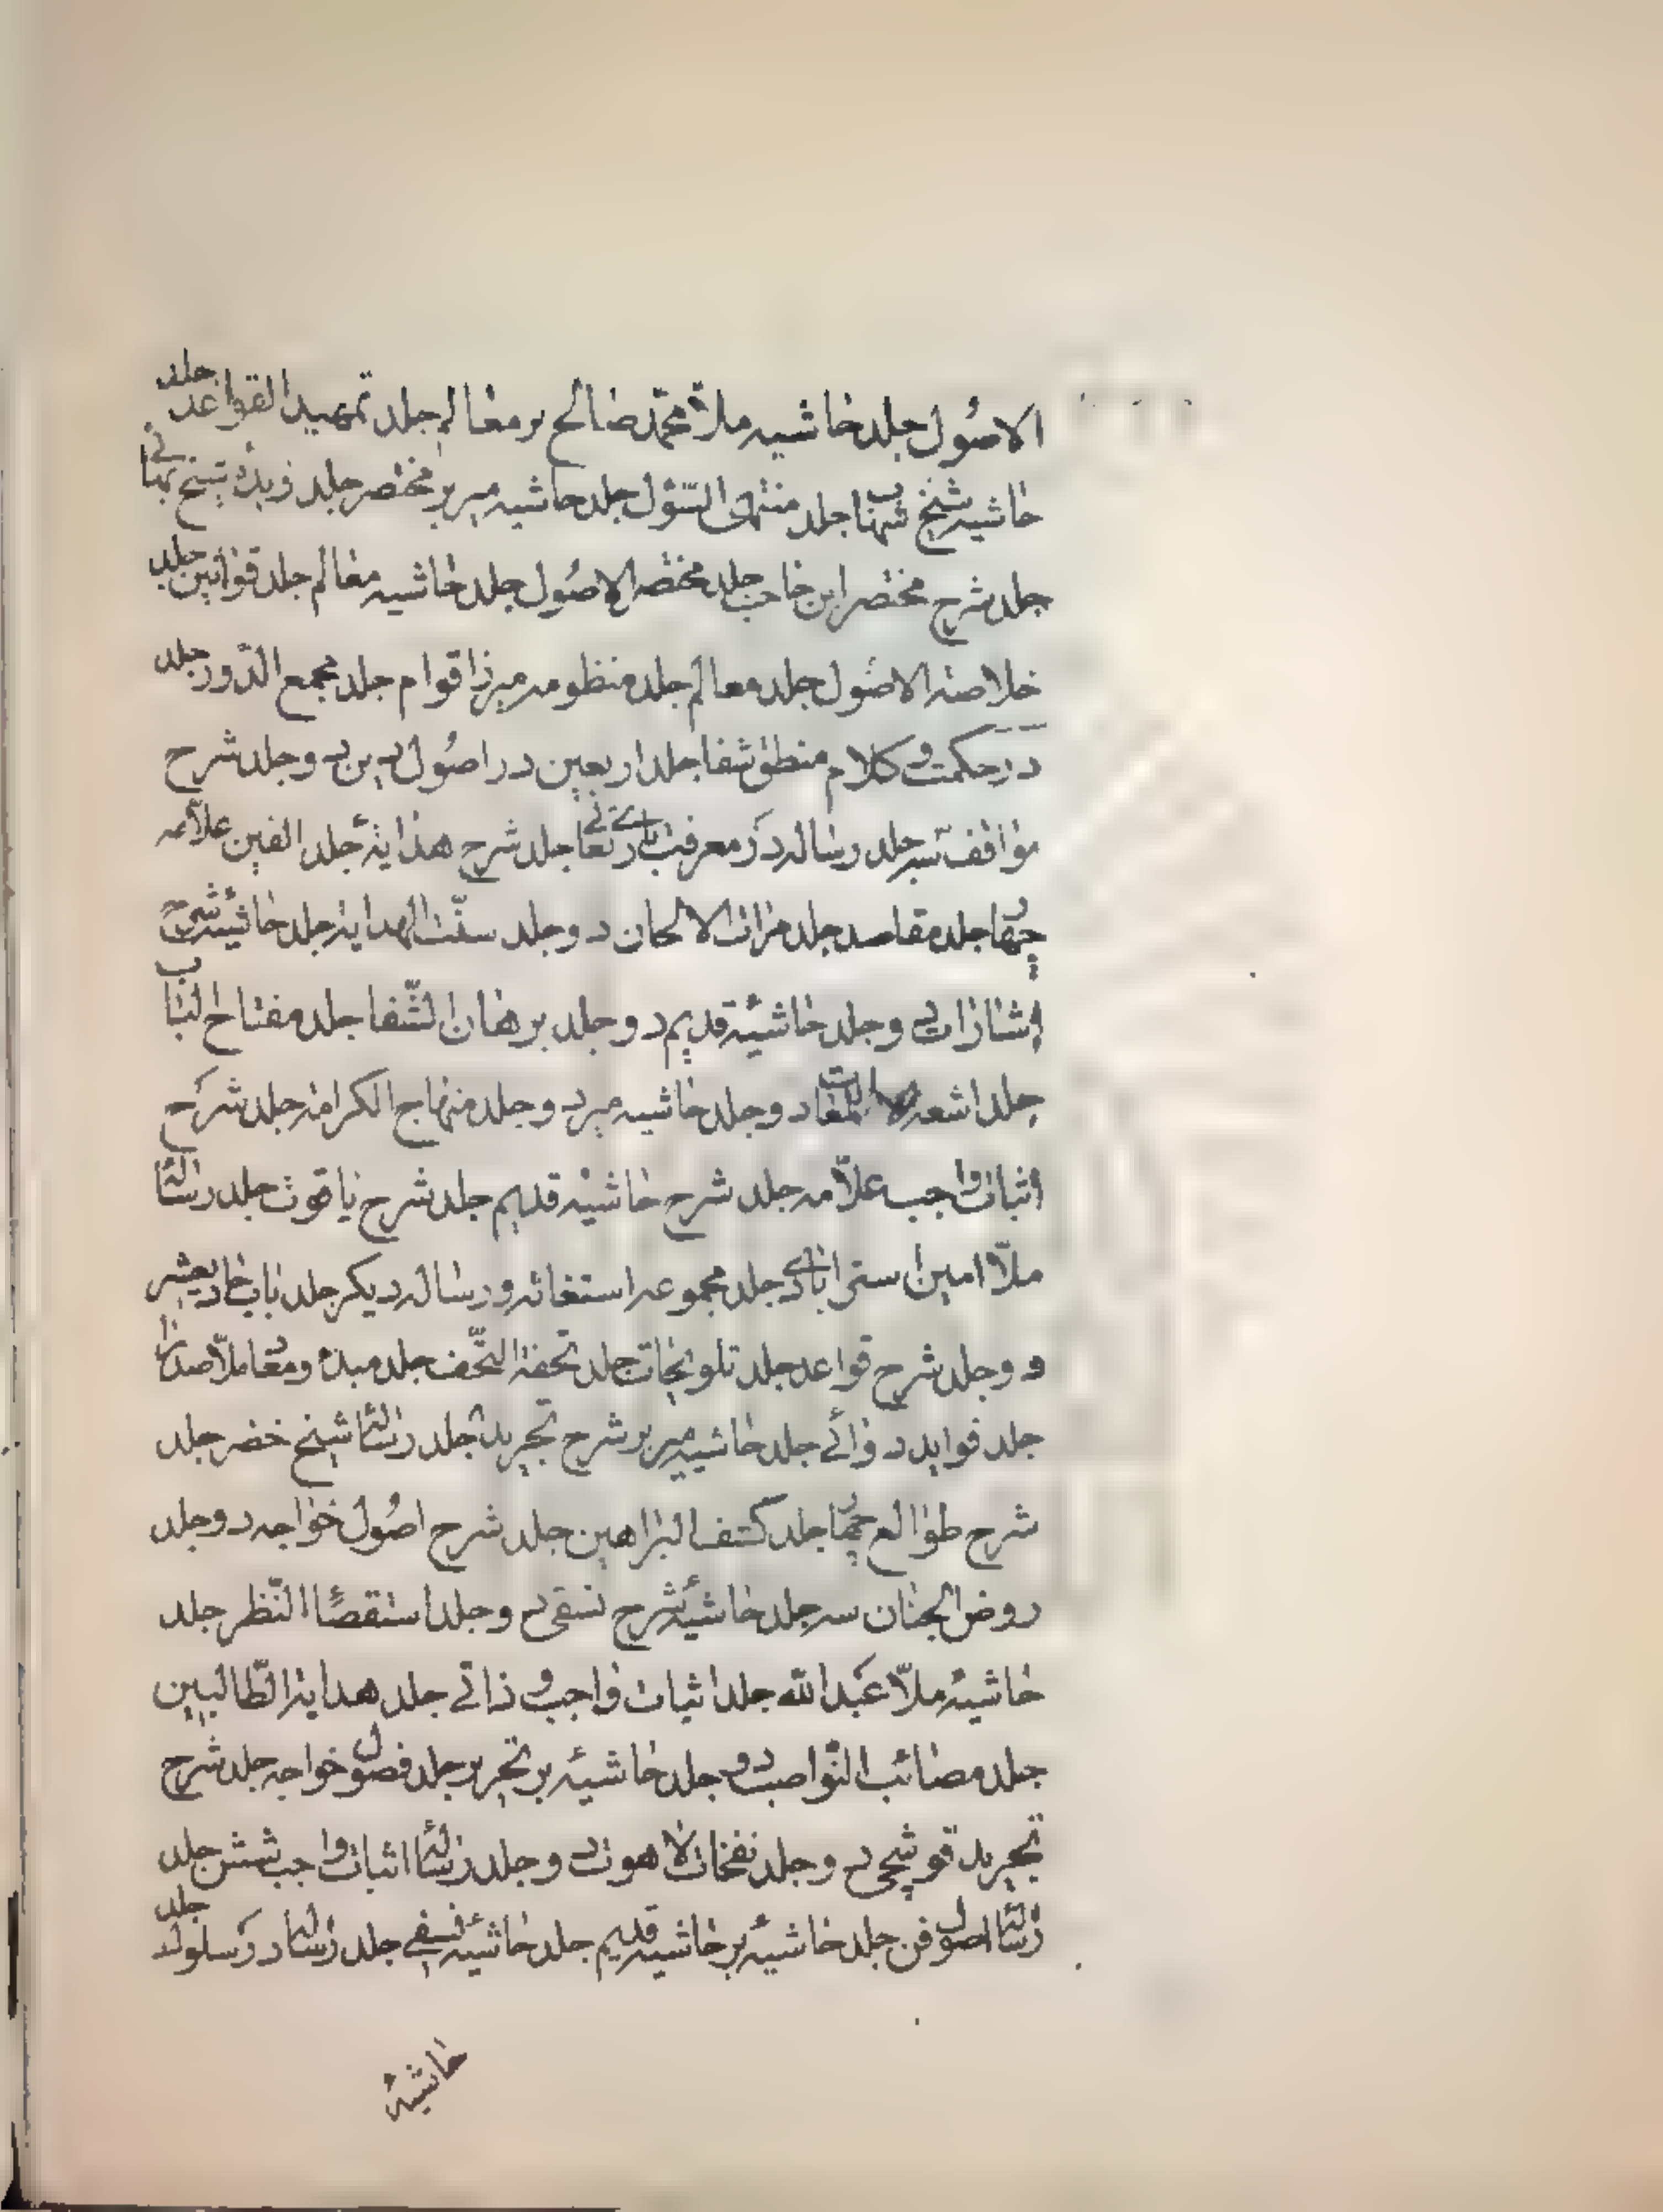 الاصُول جلد حاشیه ملاّ محمّد صالح بر معالم جلد تمهید القواعد جلد
حاشیه شیخ بهائی جلد منتهی السّؤل جلد حاشیه میر بر مختصر جلد زبدهٔ شیخ بهائی
جلد شرح مختصر ابن حاجب جلد مختصر الاصُول جلد حاشیه معالم جلد قوانین جلد
خلاصة الاصُول جلد معالم جلد منظومه میرزا قوام جلد مجمع الدّور جلد
در حکمت و کلام منطق شفا جلد اربعین در اصُول دین دو جلد شرح
مواقف سه جلد رساله در معرفت باری تعا جلد شرح هدایة جلد الفین علاّمه
چهار جلد مقاصد جلد مرات الالحان دو جلد سنّت الهدایة جلد حاشیهٔ شرح
اشارات دو جلد حاشیهٔ قدیم دو جلد برهان الشّفا جلد مفتاح اللباب
جلد اشعه دو جلد حاشیه میر دو جلد منهاج الکرامة جلد شرح
اثبات واجب علاّمه جلد شرح حاشیهٔ قدیم جلد شرح یاقوت جلد رسالهٔ
ملاّ امین استرابادی جلد مجموعه استغاثه و رساله دیکر جلد باب حادیعشر
دو جلد شرح قواعد جلد تلویحات جلد تحفة التّحف جلد مبدء و معاد ملاّ صدرا
جلد فواید دوانی جلد حاشیه میر بر شرح تجرید جلد رسالهٔ شیخ خضر جلد
شرح طوالع چهار جلد کشف البراهین جلد شرح اصُول خواجه دو جلد
روض الجنان سه جلد حاشیهٔ شرح نسفی دو جلد استقصاء النّظر جلد
حاشیهٔ ملاّ عبد الله جلد اثبات واجب دوانی جلد هدایة الطّالبین
جلد مصائب النّواصب دو جلد حاشیهٔ بر تحریر جلد فصول خواجه جلد شرح
تجرید قوشچی دو جلد نفحات لاهوت دو جلد رسالهٔ اثبات واجب شش جلد
رسالهٔ اصول فن جلد حاشیهٔ بر حاشیه قدیم جلد حاشیهٔ نسفی جلد رساله در سلوک جلد
حاشیهٔ